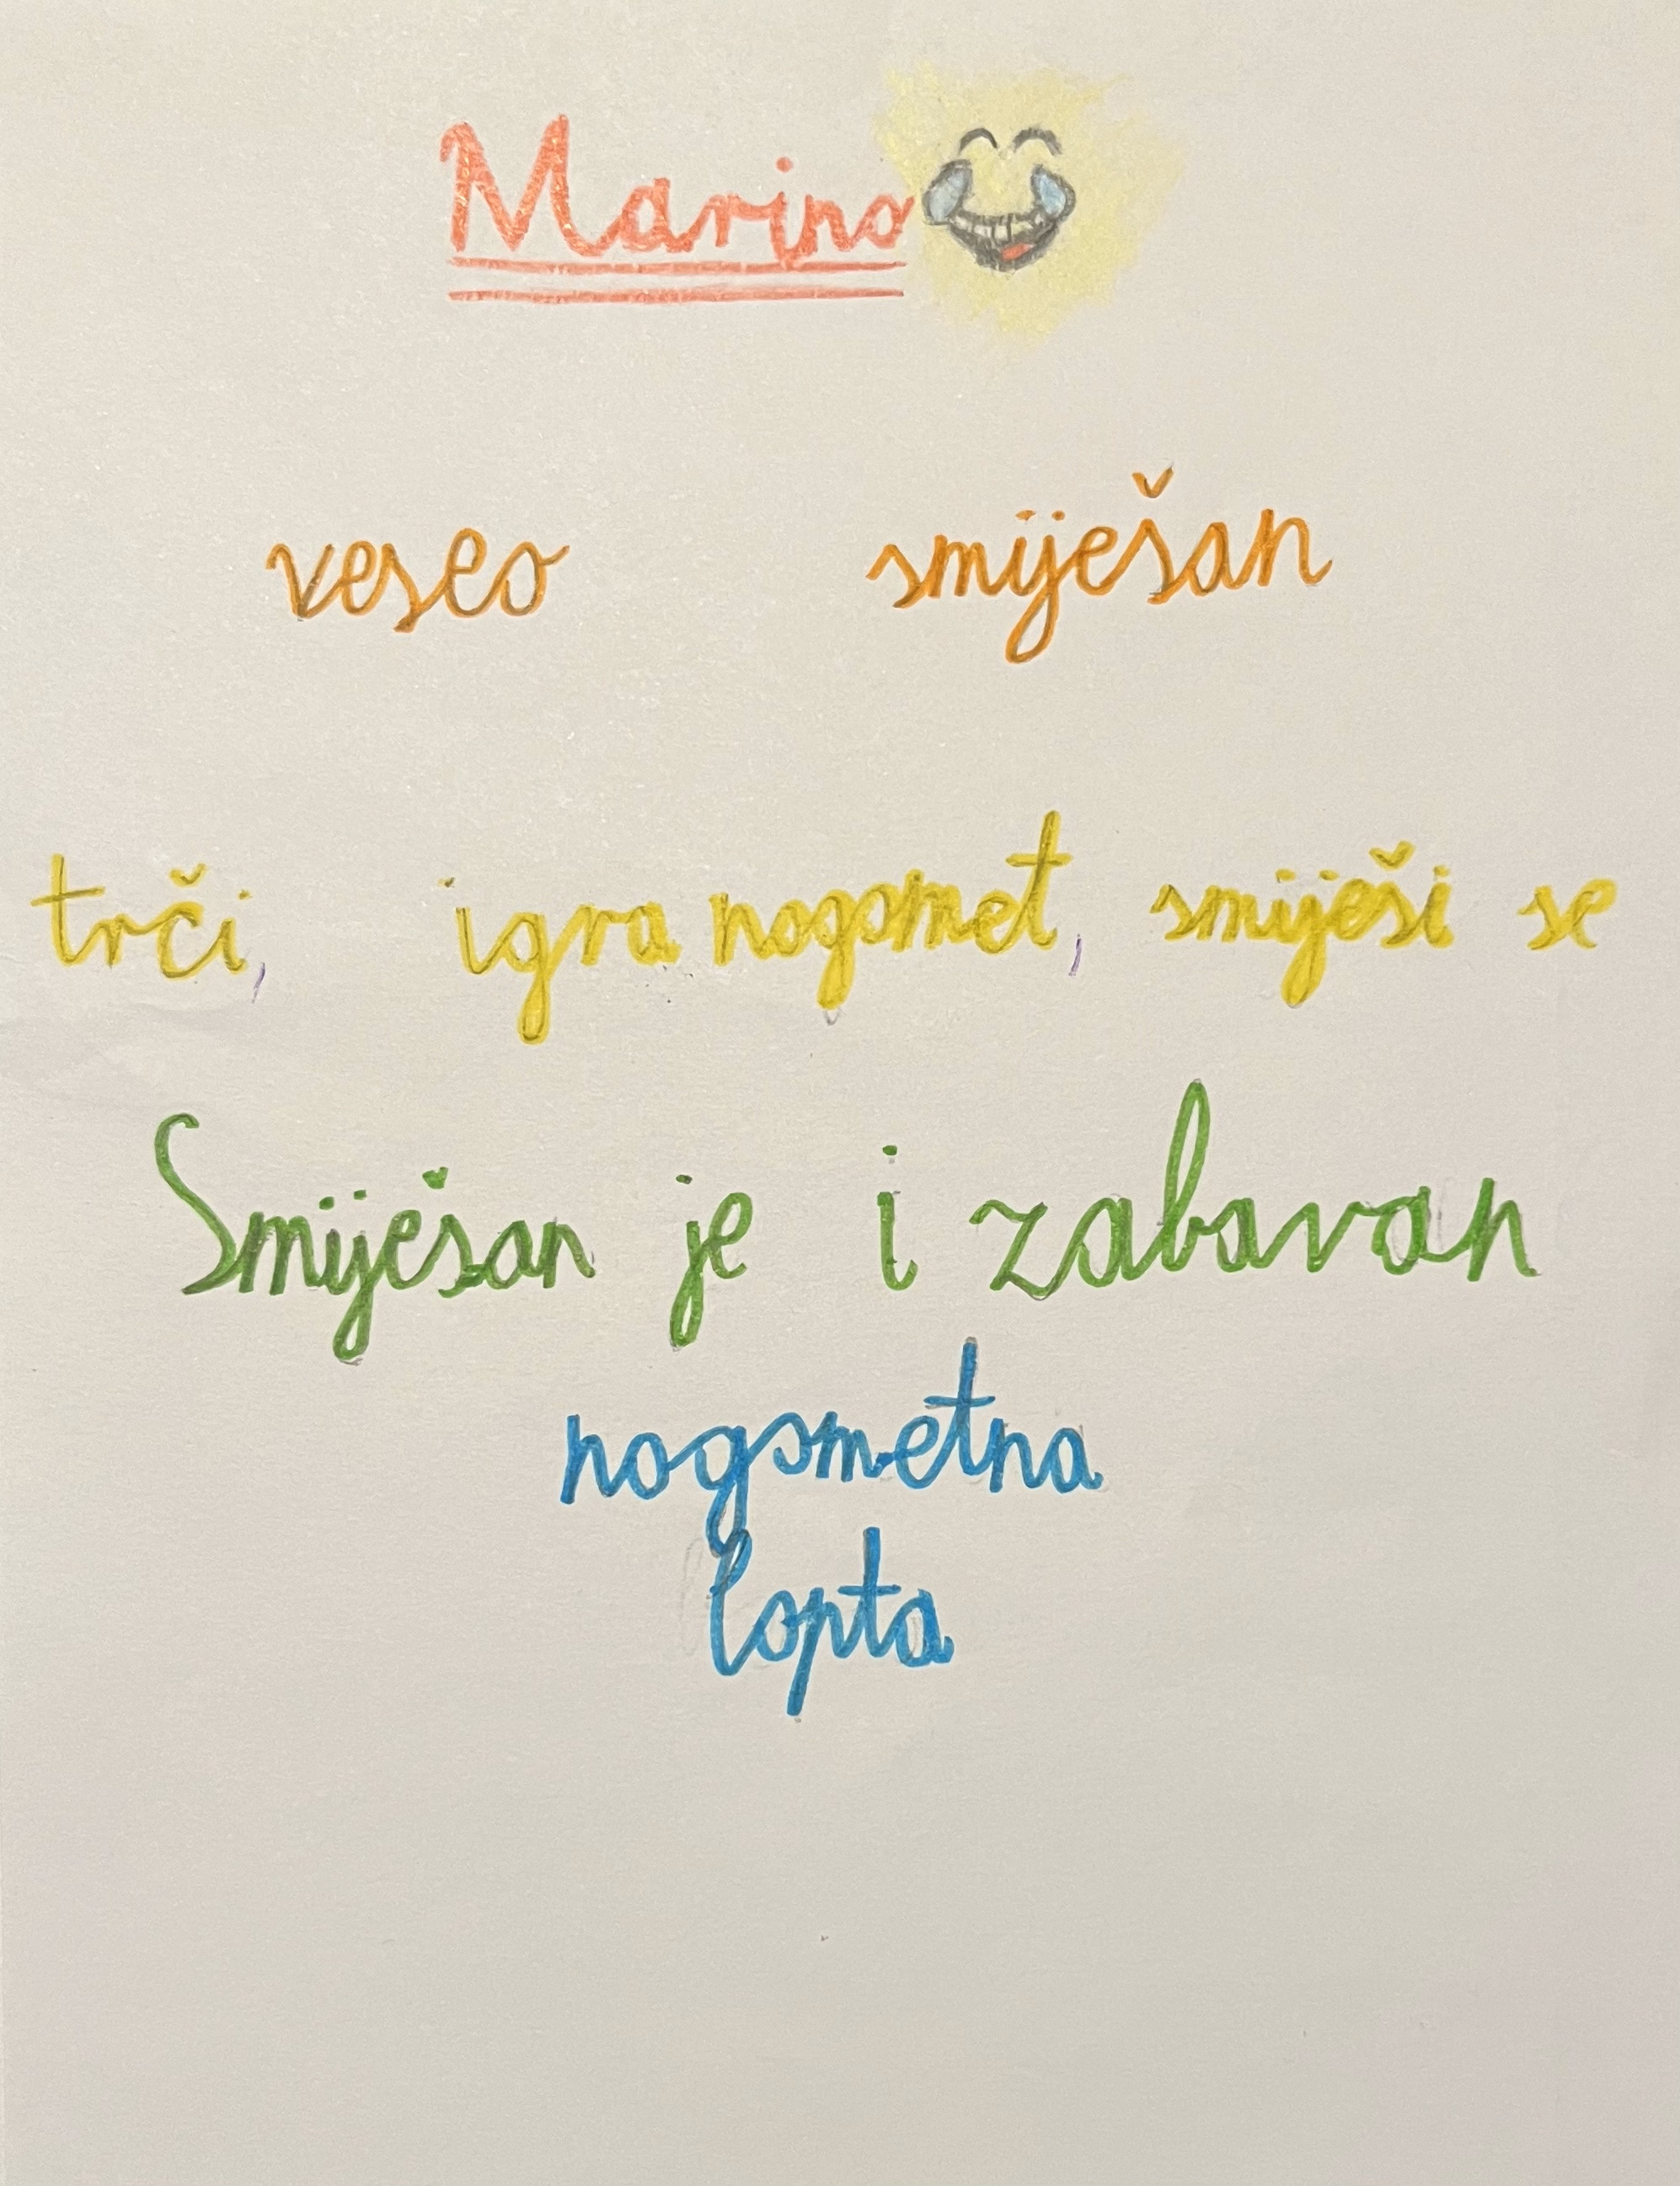 Marino
veseo smiješan
trči, igra nogomet, smiješi se
Smiješan je i zabavan
nogometna
lopta